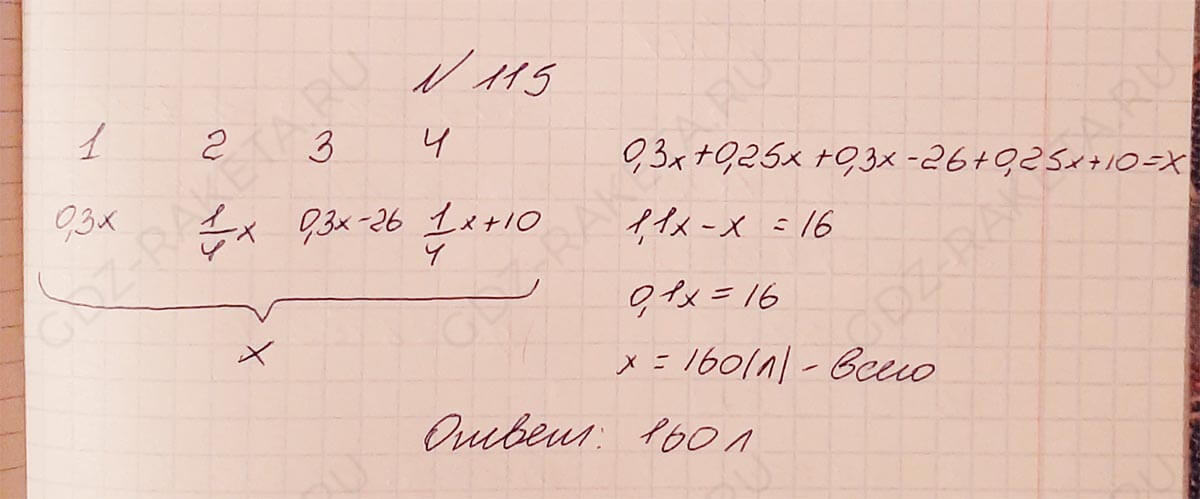 N 115
1 2 3 4
0,3x 1/4x 0,3x-26 1/4x+10
x
0,3x+0,25x+0,3x-26+0,25x+10=x
1,1x-x = 16
0,1x = 16
x = 160(л) - всего
Ответ: 160 л
GDZ-RAKETA.RU
GDZ-RAKETA.RU
GDZ-RAKETA.RU